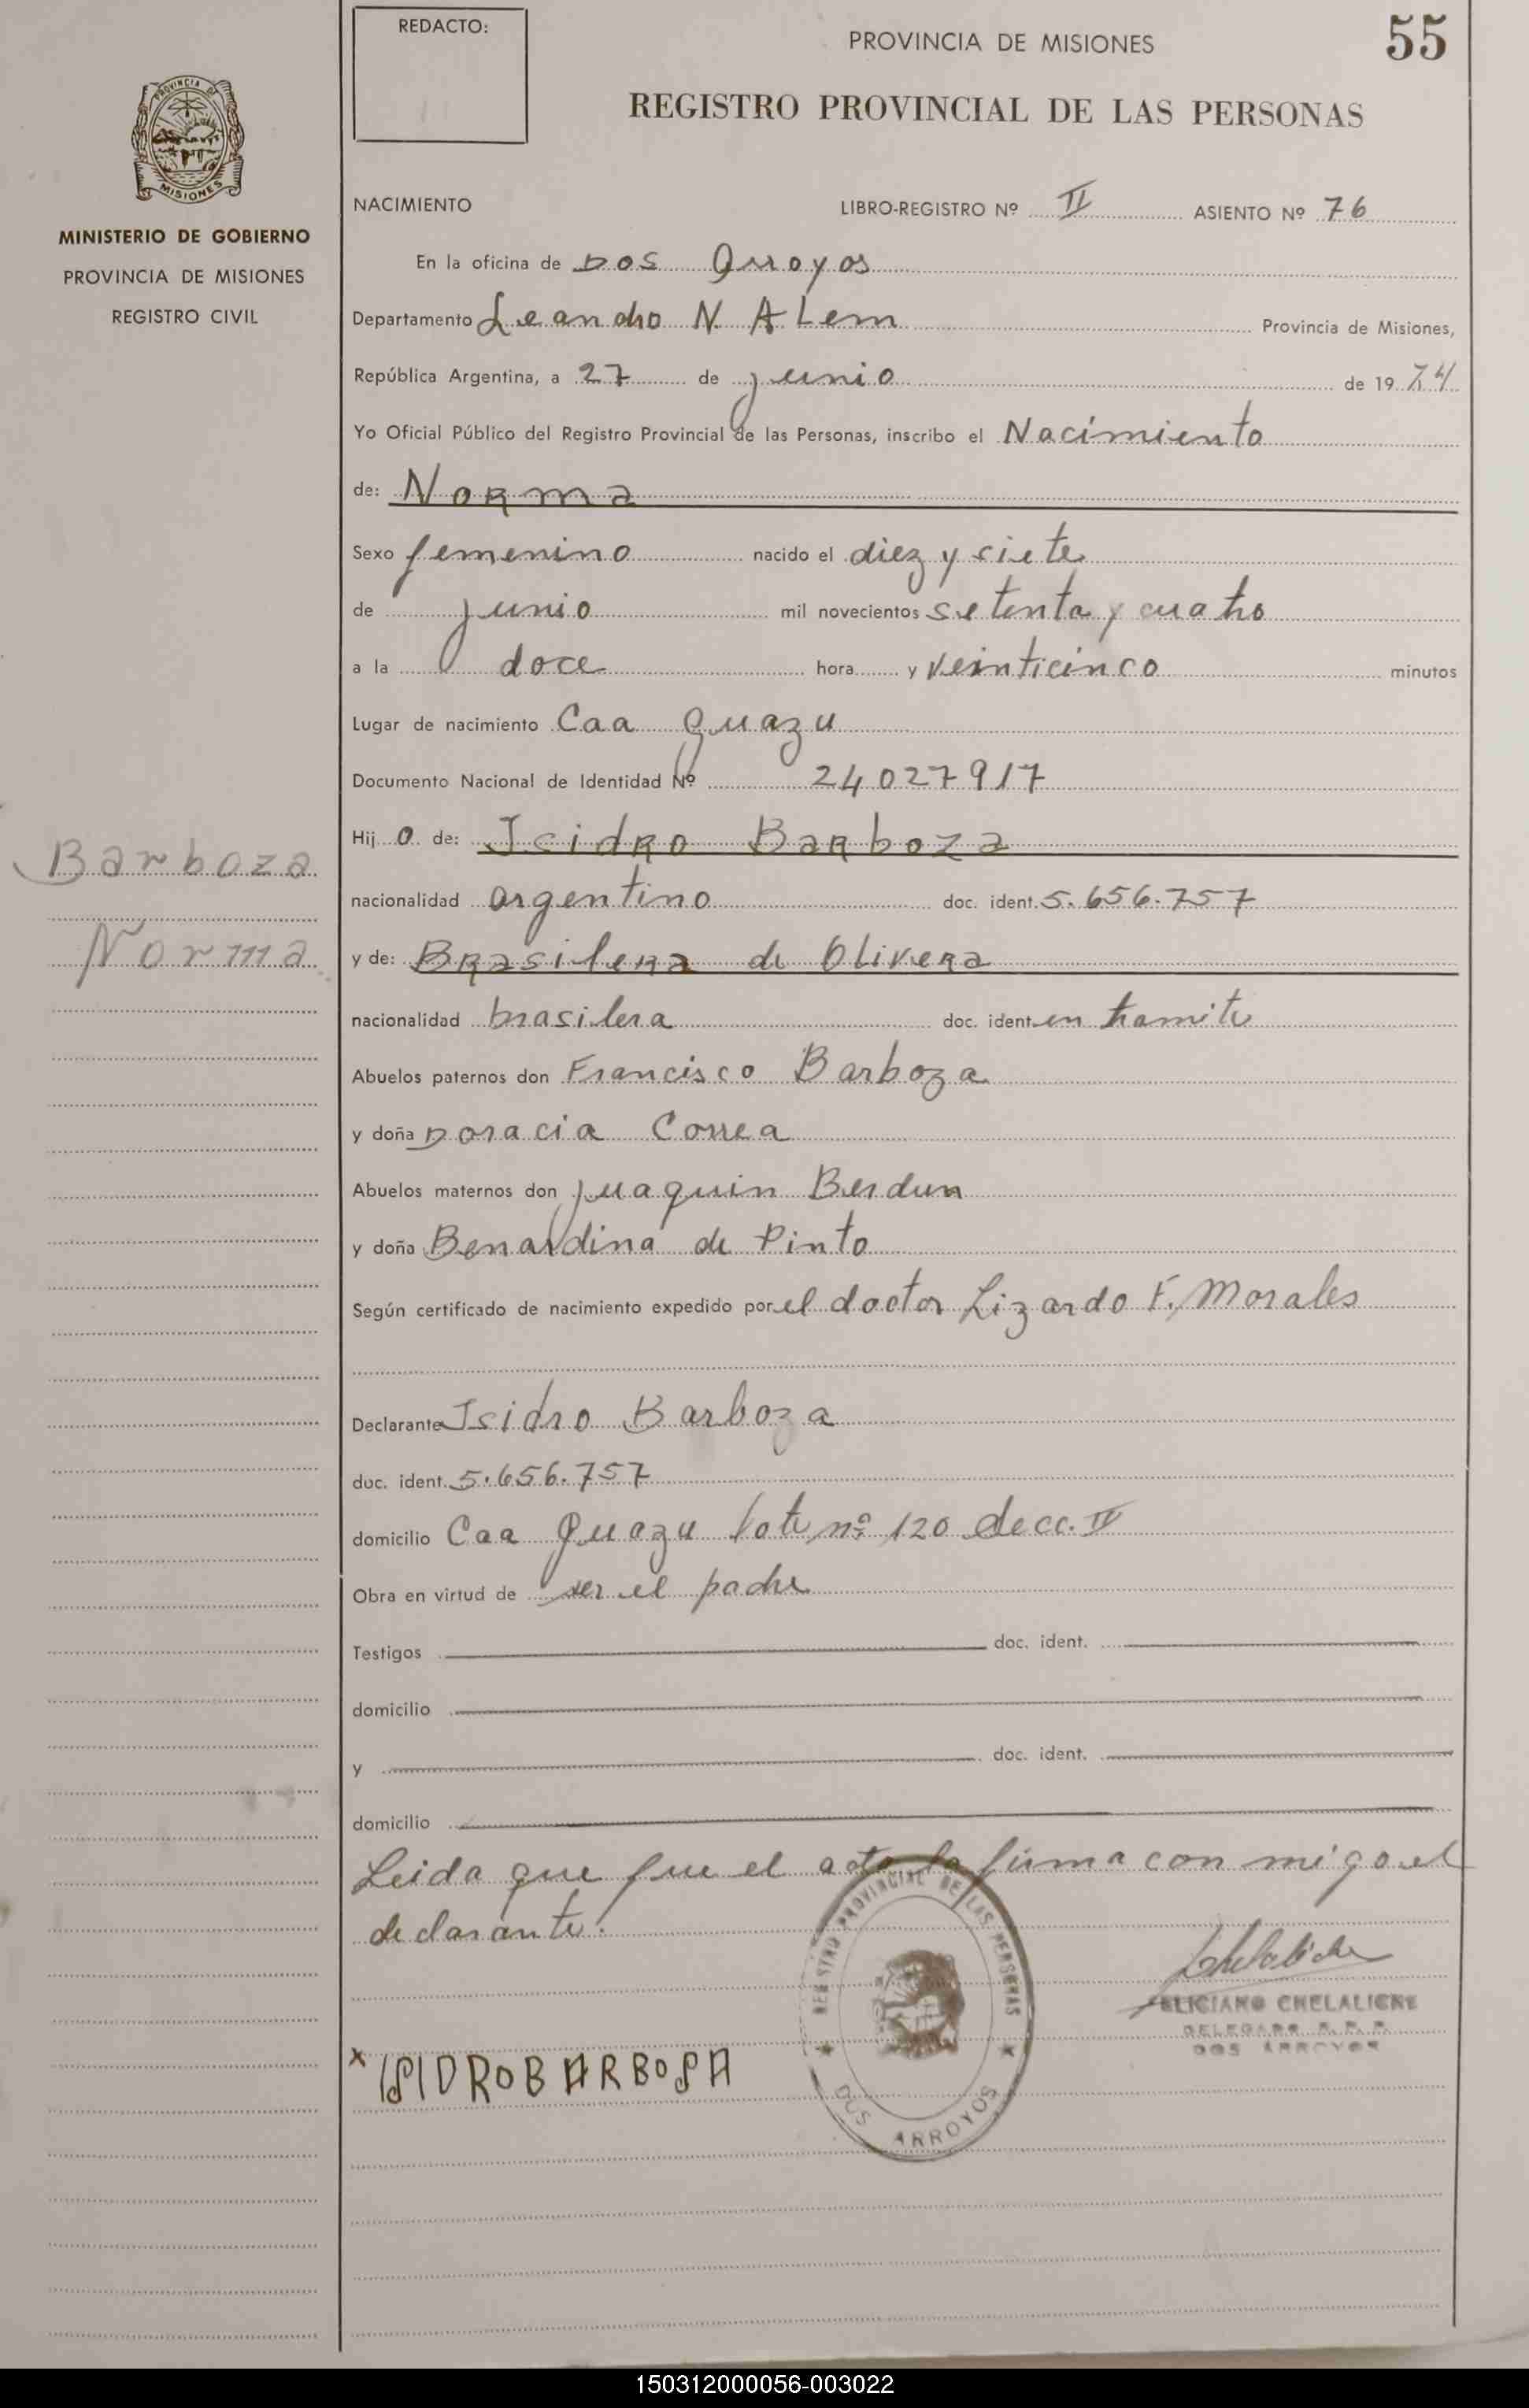 REDACTO:
PROVINCIA DE MISIONES
55
REGISTRO PROVINCIAL DE LAS PERSONAS
PROVINCIA DE
MISIONES
MINISTERIO DE GOBIERNO
PROVINCIA DE MISIONES
REGISTRO CIVIL
NACIMIENTO LIBRO-REGISTRO Nº II ASIENTO Nº 76
En la oficina de Dos Arroyos
Departamento Leandro N. ALem Provincia de Misiones,
República Argentina, a 27 de junio de 19 74
Yo Oficial Público del Registro Provincial de las Personas, inscribo el Nacimiento
de: Norma
Sexo femenino nacido el diez y siete
de junio mil novecientos setenta y cuatro
a la doce hora y veinticinco minutos
Lugar de nacimiento Caa Guazu
Documento Nacional de Identidad Nº 24027917
Hij o de: Isidro Barboza
Barboza
nacionalidad argentino doc. ident. 5.656.757
Norma
y de: Brasilera de Olivera
nacionalidad brasilera doc. ident. en tramite
Abuelos paternos don Francisco Barboza
y doña Doracia Correa
Abuelos maternos don Juaquin Berdun
y doña Benardina de Pinto
Según certificado de nacimiento expedido por el doctor Lizardo F. Morales
Declarante Isidro Barboza
doc. ident. 5.656.757
domicilio Caa Guazu lote nº 120 Secc. IV
Obra en virtud de ser el padre
Testigos doc. ident.
domicilio
y doc. ident.
domicilio
Leida que fue el acta la firma con migo el
declarante.
REGISTRO PROVINCIAL DE LAS PERSONAS
DOS ARROYOS
Chelaliche
FELICIANO CHELALICHE
DELEGADO R. P. P.
DOS ARROYOS
x ISIDRO BARBOSA
150312000056-003022